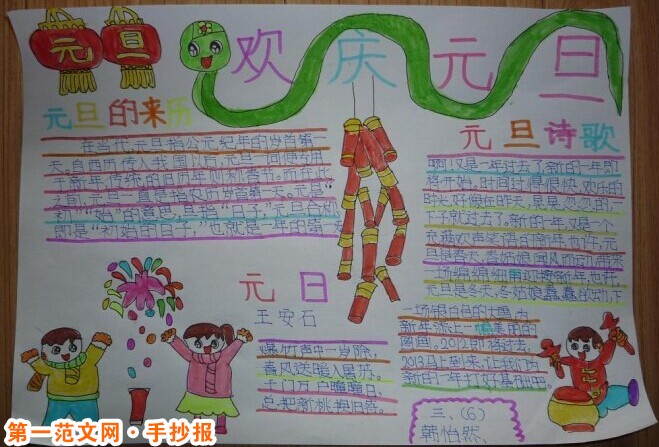 元旦
欢庆元旦
元旦的来历
在当代,元旦指公元纪年的岁首第一
天。自西历传入我国以后,元旦一词便专用
于新年,传统的旧历年则称春节。而在此
之前,元旦一直是指农历岁首第一天。元是"
初""始"的意思,旦指"日子",元旦合称
即是"初始的日子,"也就是一年的第
元日
王安石
爆竹声中一岁除,
春风送暖入屠苏,
千门万户曈曈日,
总把新桃换旧符。
元旦诗歌
啊!又是一年过去了新的一年即
将开始。时间过得很快,欢乐的
时光好像在昨天,匆匆
下子就过去了。新的一年又是一个
充满欢声笑语的
元旦是冬天,冬姑娘
一场银白色的大
新年添上一
2012即将过去,
2013马上到来,让我们为
新的一年打好基础吧。
三、(6)
韩怡然
第一范文网·手抄报